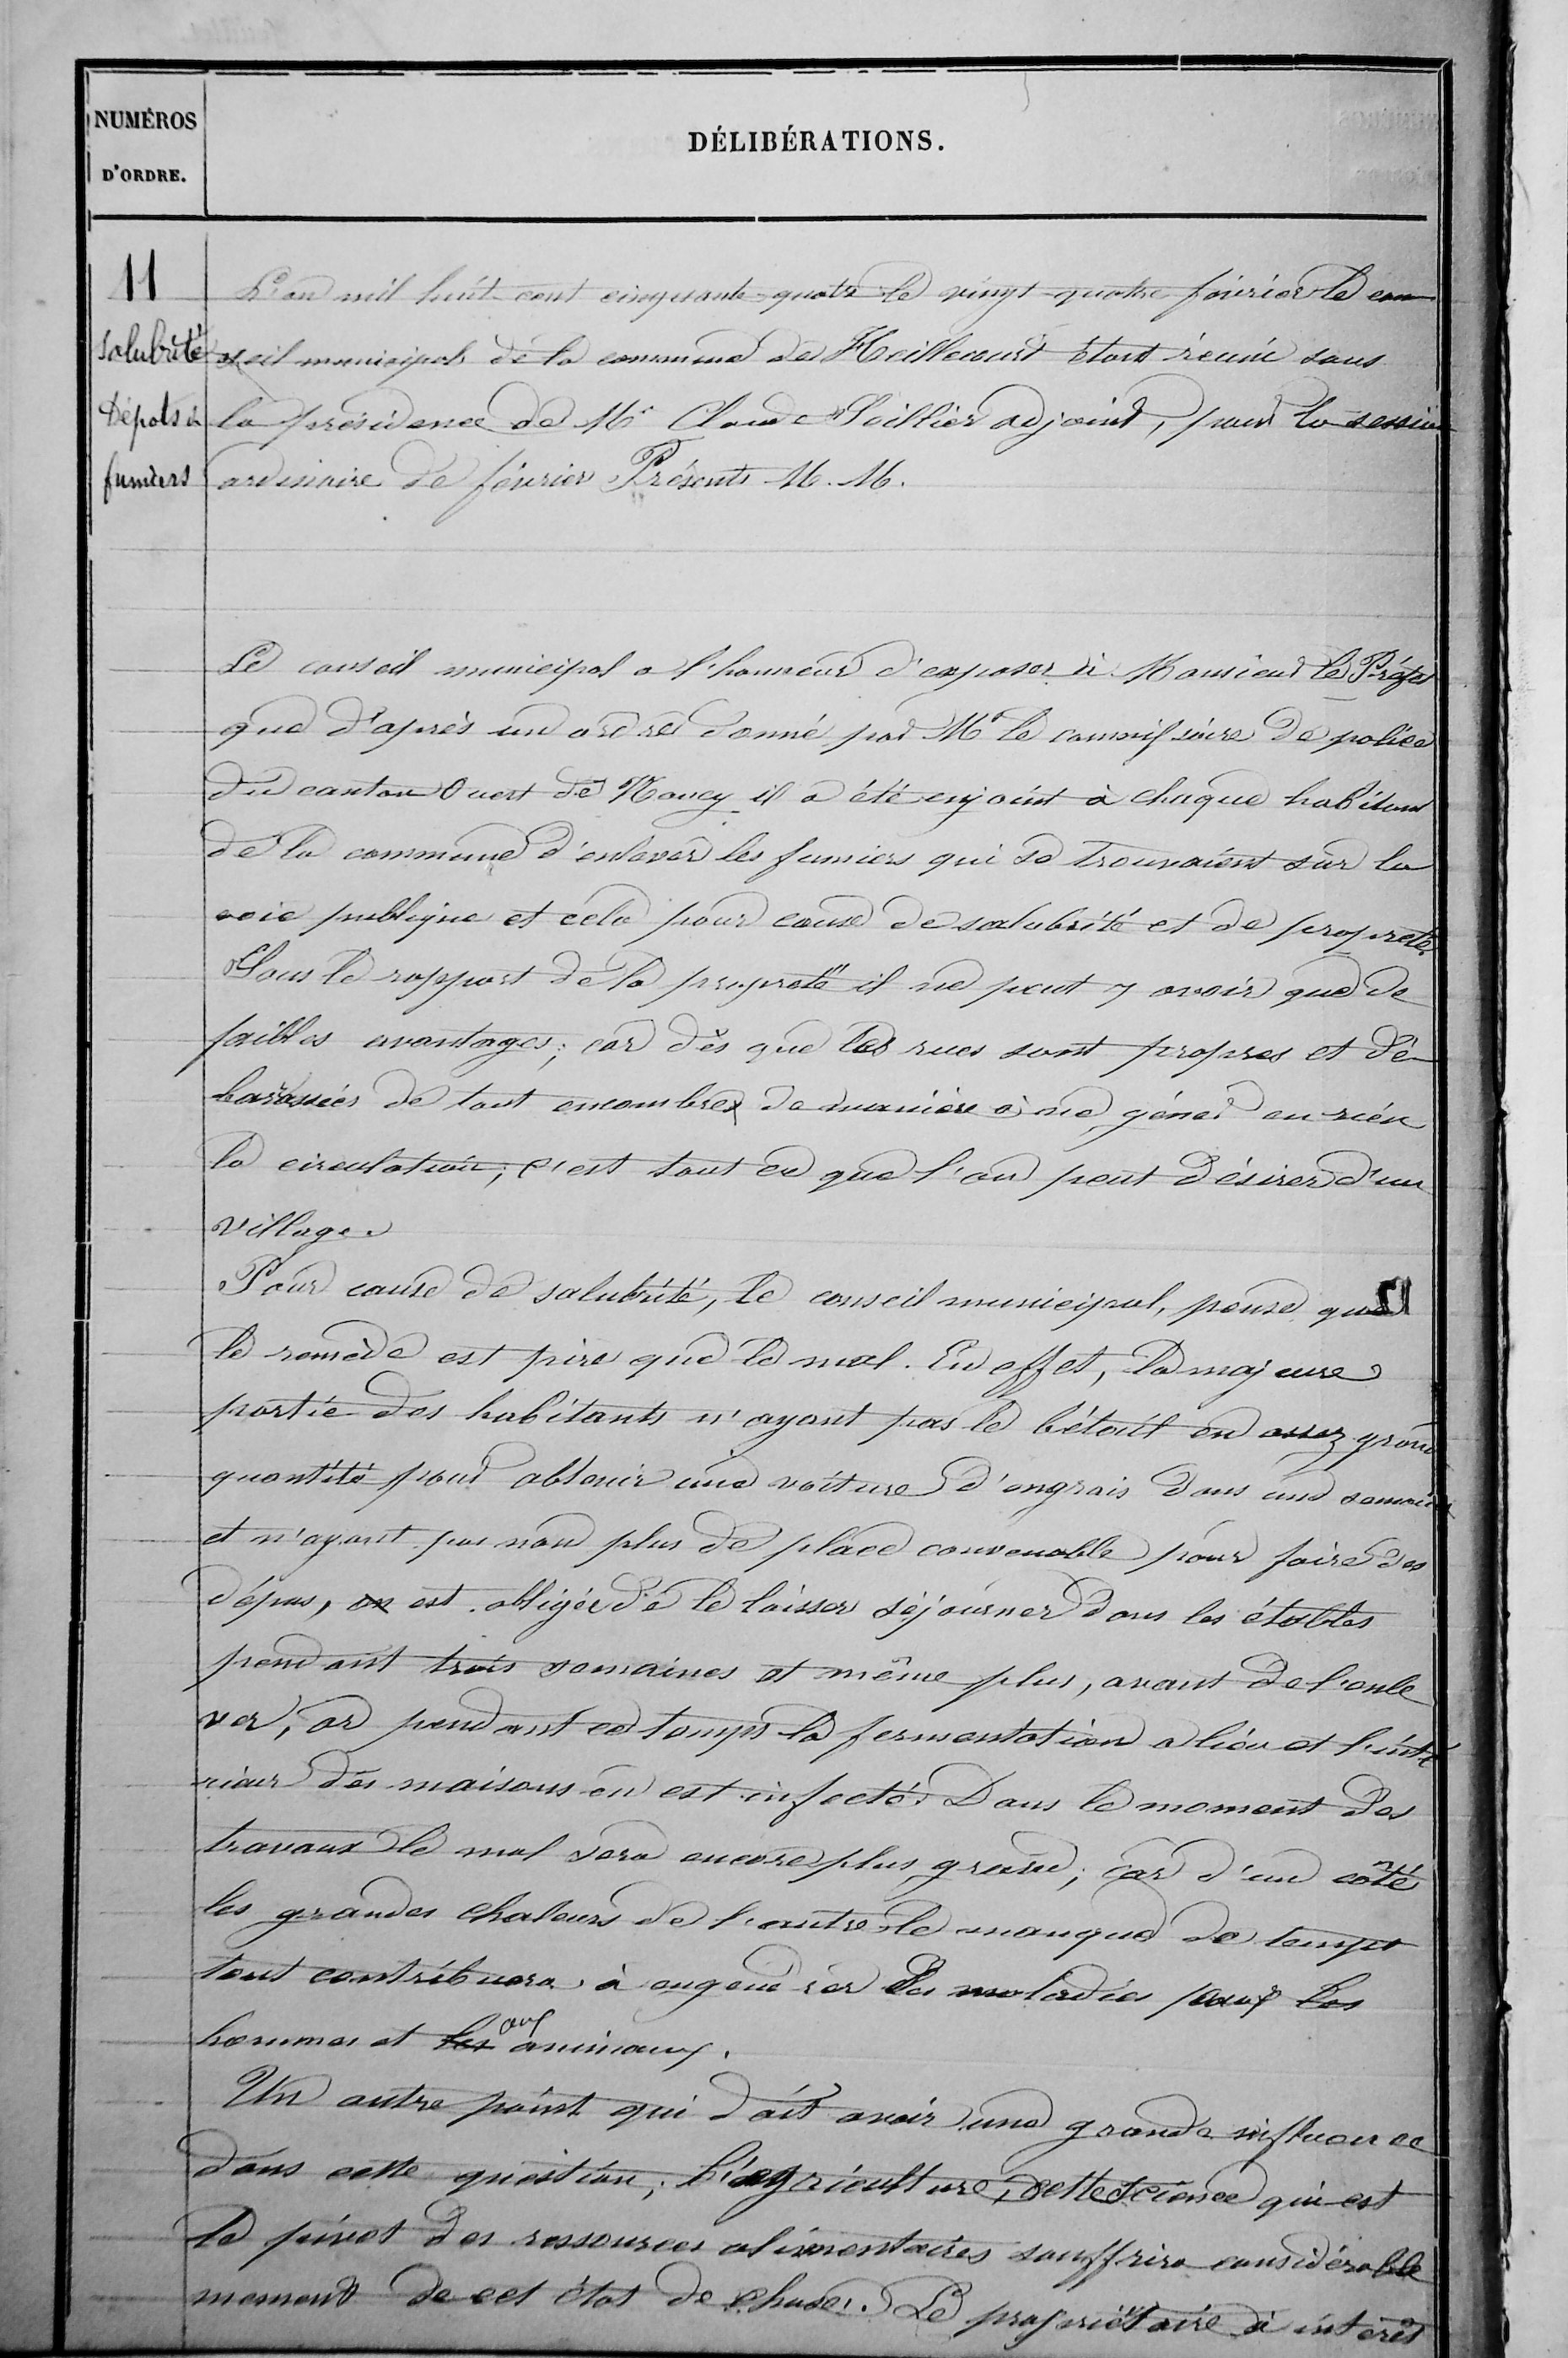 NUMÉROS
D'ORDRE.
DÉLIBÉRATIONS.
11
Salubrité
Dépots de
fumiers
L'an mil huit cent cinquante-quatre le vingt-quatre février le con
seil municipal de la commune de Heillecourt étant réuni sous
la présidence de Mr Claude adjoint, pour la session
ordinaire de février Présents M. M.
Le conseil municipal a l'honneur d'exposer à Monsieur le Préfet
que d'après un ordre donné par Mr le commissaire de police
du canton Ouest de Nancy il a été enjoint à chaque habitant
de la commune d'enlever les fumiers qui se trouvaient sur la
voie publique et cela pour cause de salubrité et de propreté
Sous le rapport de la propreté il ne peut y avoir que de
faibles avantages; car dès que les rues sont propres et dé-
barassées de tout encombre de manière à ne gêner en rien
la circulation; c'est tout ce que l'on peut désirer d'un
village.
Pour cause de salubrité, le conseil municipal, pense que
le remède est pire que le mal. En effet, la majeure
partie des habitants n'ayant pas le bétail en assez grand
quantité pour obtenir une voiture d'engrais dans une semaine
et n'ayant pas non plus de place convenable pour faire des
dépos, on est obligée de le laisser séjourner dans les étables
pendant trois semaines et même plus, avant de l'enle
ver, or pendant ce temps la fermentation a lieu et l'inté
rieur des maisons en est infecté. Dans le moment des
travaux le mal sera encore plus grand; car d'un côté
les grandes chaleurs de l'autre le manque de temps
tout contribuera à engendrer des maladies les
hommes et les aux animaux.
Un autre point qui doit avoir une grande influence
dans cette question, l'agriculture, cette science qui est
le pivot des ressources alimentaires souffrira considérable
ment de cet état de chose. Le propriétaire à intérêt